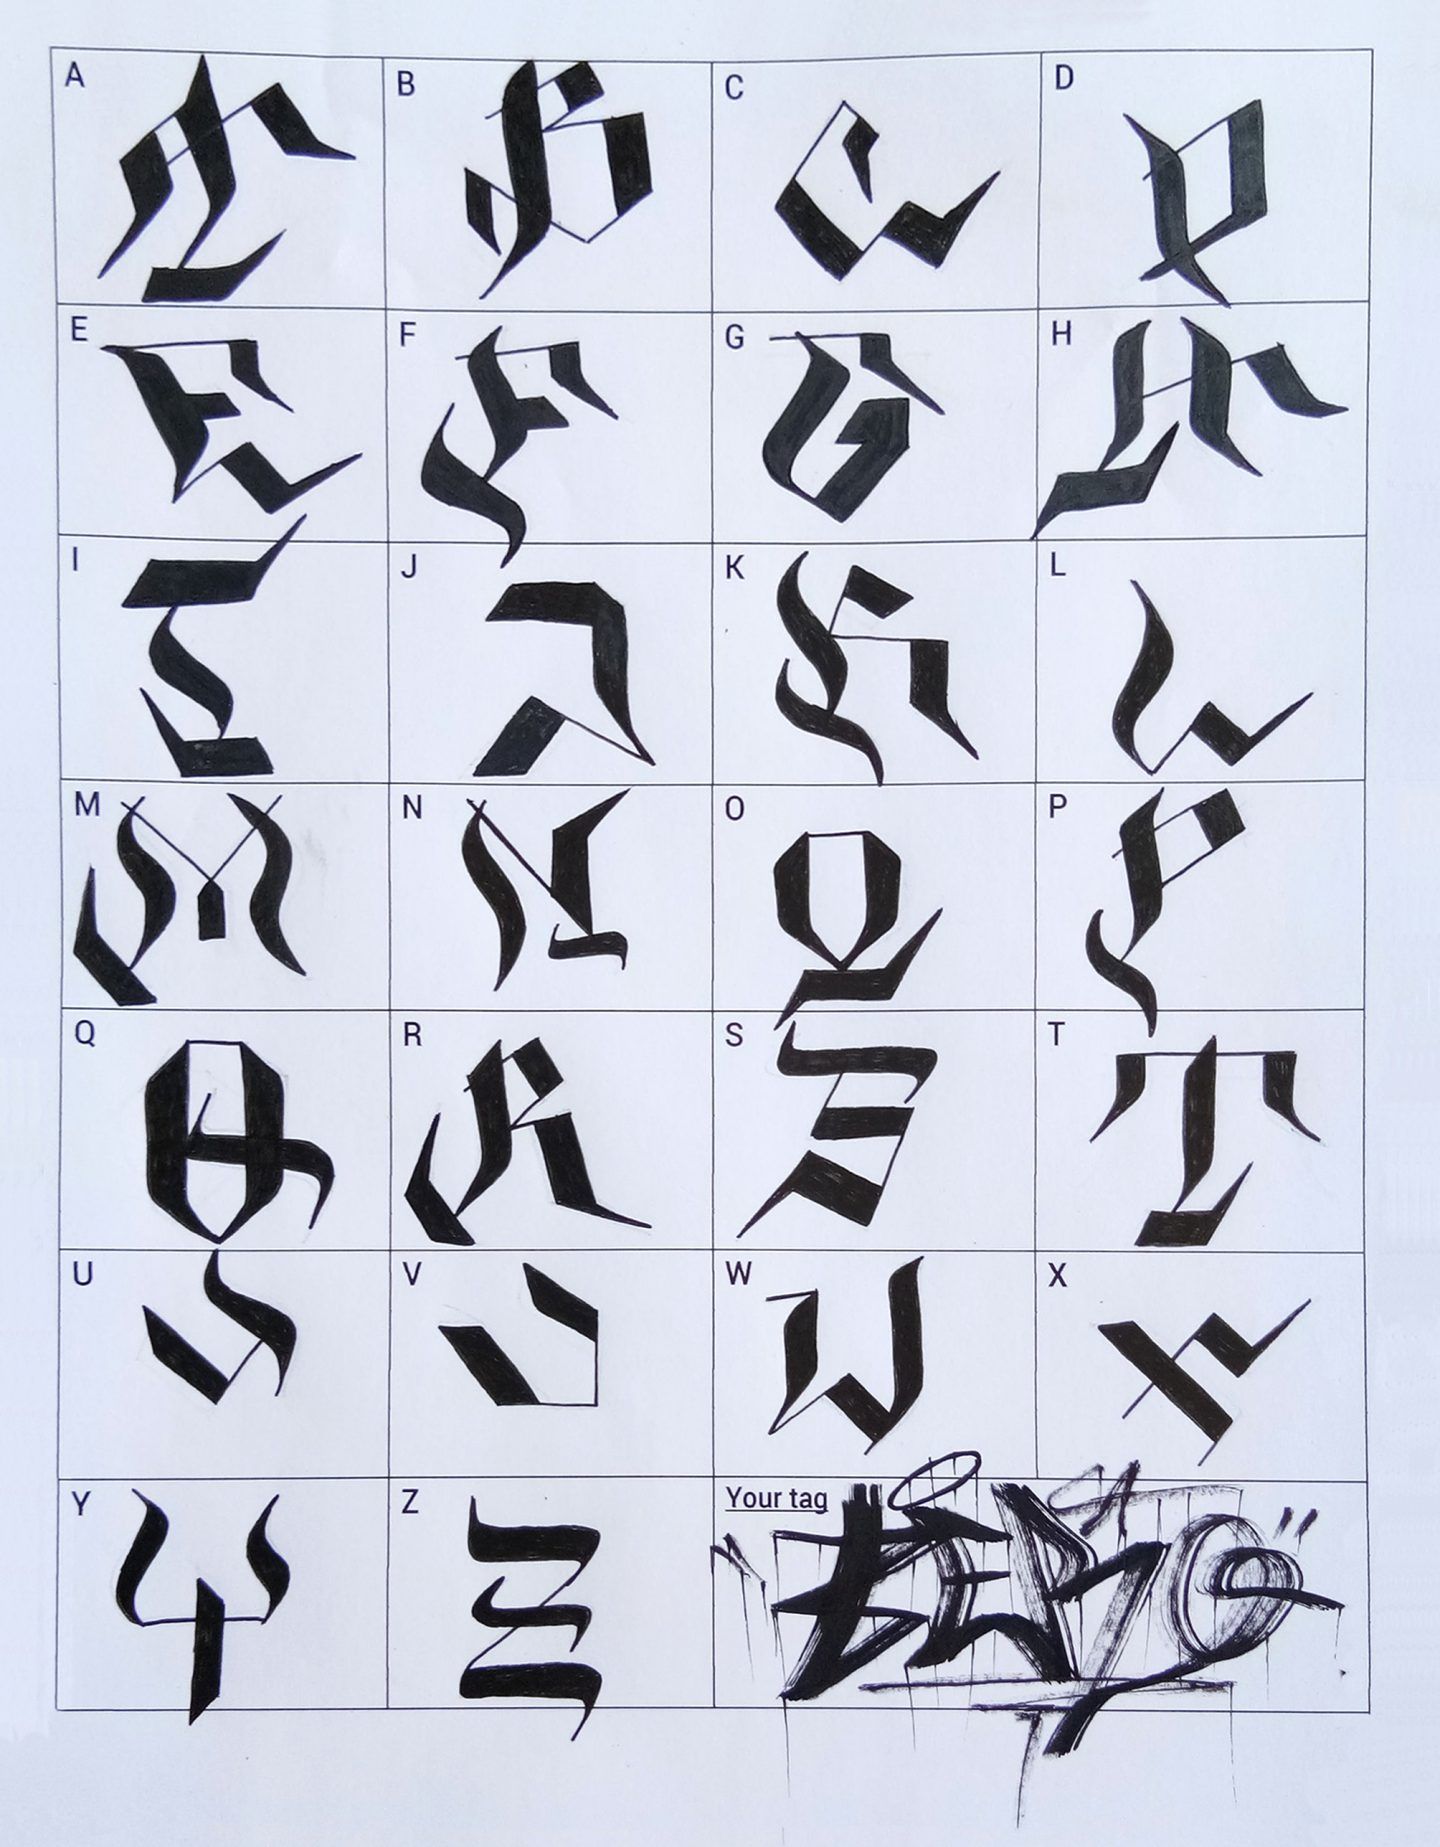 A B C D
E F G H
I J K L
M N O P
Q R S T
U V W X
Y Z Your tag